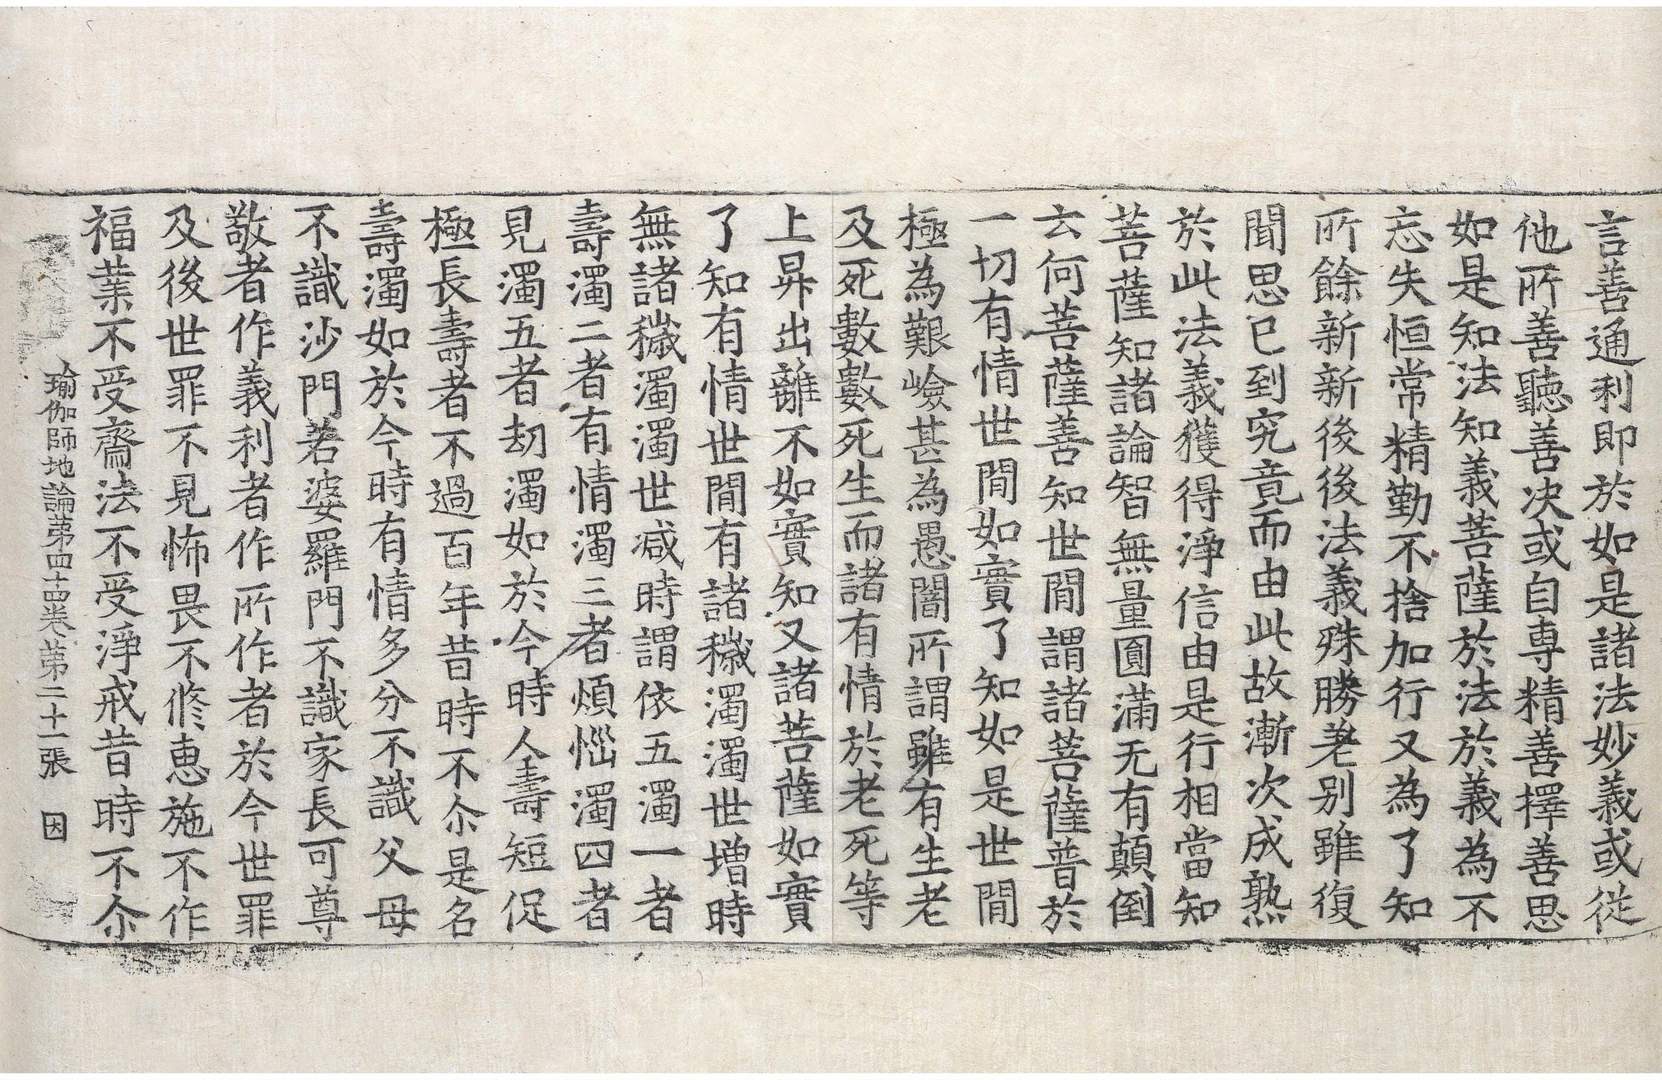 言善通利即於如是諸法妙義或從
他所善聽善决或自專精善擇善思
如是知法知義菩薩於法於義為不
忘失恒常精勤不捨加行又為了知
所餘新新後後法義殊勝差別雖復
聞思已到究竟而由此故漸次成熟
於此法義獲得淨信由是行相當知
菩薩知諸論智無量圎滿无有顛倒
云何菩薩善知世間謂諸菩薩普於
一切有情世間如實了知如是世間
極為艱嶮甚為愚闇所謂雖有生老
及死數數死生而諸有情於老死等
上昇出離不如實知又諸菩薩如實
了知有情世間有諸穢濁濁世增時
無諸穢濁濁世减時謂依五濁一者
壽濁二者有情濁三者煩惱濁四者
見濁五者劫濁如於今時人壽短促
極長壽者不過百年昔時不尒是名
壽濁如於今時有情多分不識父母
不識沙門若婆羅門不識家長可尊
敬者作義利者作所作者於今世罪
及後世罪不見怖畏不修惠施不作
福業不受齋法不受淨戒昔時不尒
瑜伽師地論第四十四卷第二十一張 因